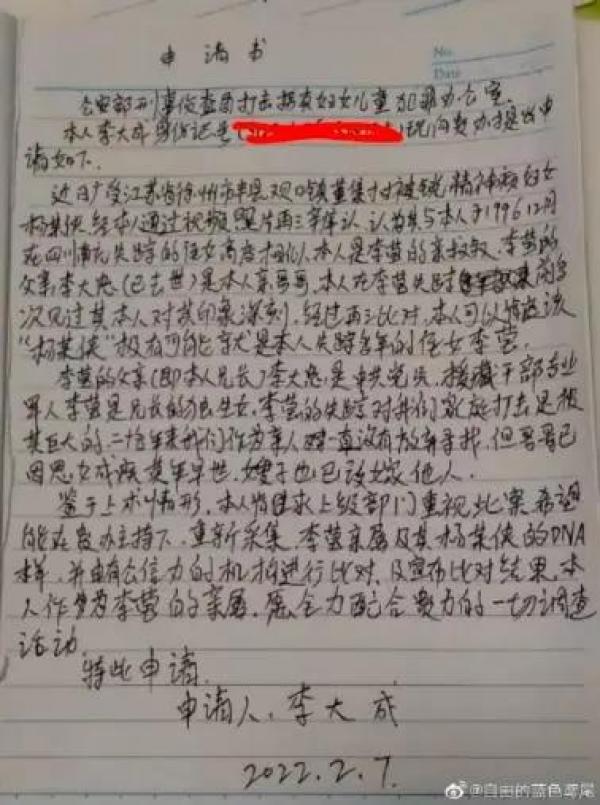 申请书
No.
Date
公安部刑事侦查局打击拐卖妇女儿童犯罪办公室
本人李大成身份证号 现向贵办提出申
请如下.
近日广受江苏省徐州市丰县欢口镇董集村被锁精神病妇女
杨某侠经本人通过视频照片再三辨认,认为其与本人于1996.12月
在四川南充失踪的侄女高度相似,本人是李莹的亲叔叔,李莹的
父亲李大忠(已去世)是本人亲哥哥,本人在李莹失踪前多
次见过其本人对其印象深刻,经过再三比对,本人可以确认该
"杨某侠"极有可能就是本人失踪多年的侄女李莹.
李莹的父亲(即本人兄长)李大忠是中共党员,援藏干部专业
军人李莹是兄长的独生女,李莹的失踪对我们家庭打击是极
其巨大的,二十多年来我们作为亲人一直没有放弃寻找,但哥哥已
因思女成疾英年早世,嫂子也已改嫁他人.
鉴于上术情形,本人恳请上级部门重视此案希望
能在贵办主持下,重新采集,李莹亲属及其杨某侠的DNA
样,并由有公信力的机构进行比对,及宣布比对结果,本
人作为李莹的亲属,愿全力配合贵办的一切调查
活动.
特此申请.
申请人:李大成
2022.2.7.
@自由的蓝色鸢尾